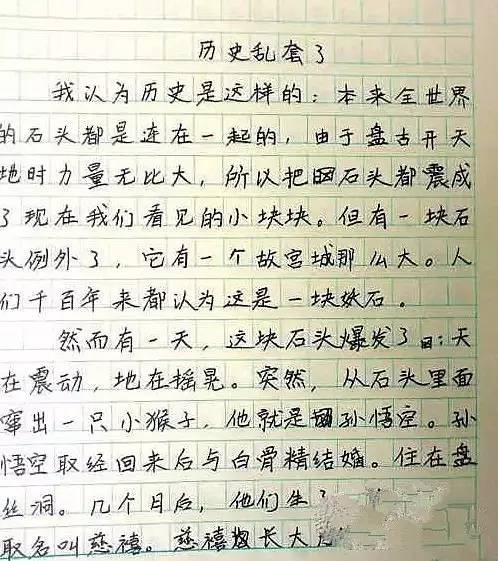 历史乱套了
我认为历史是这样的：本来全世界
的石头都是连在一起的，由于盘古开天
地时力量无比大，所以把石头都震成
了现在我们看见的小块块。但有一块石
头例外了，它有一个故宫城那么大。人
们千百年来都认为这是一块妖石。
然而有一天，这块石头爆发了：天
在震动，地在摇晃。突然，从石头里面
窜出一只小猴子，他就是孙悟空。孙
悟空取经回来后与白骨精结婚。住在盘
丝洞。几个月后，他们生了
取名叫慈禧。慈禧长大